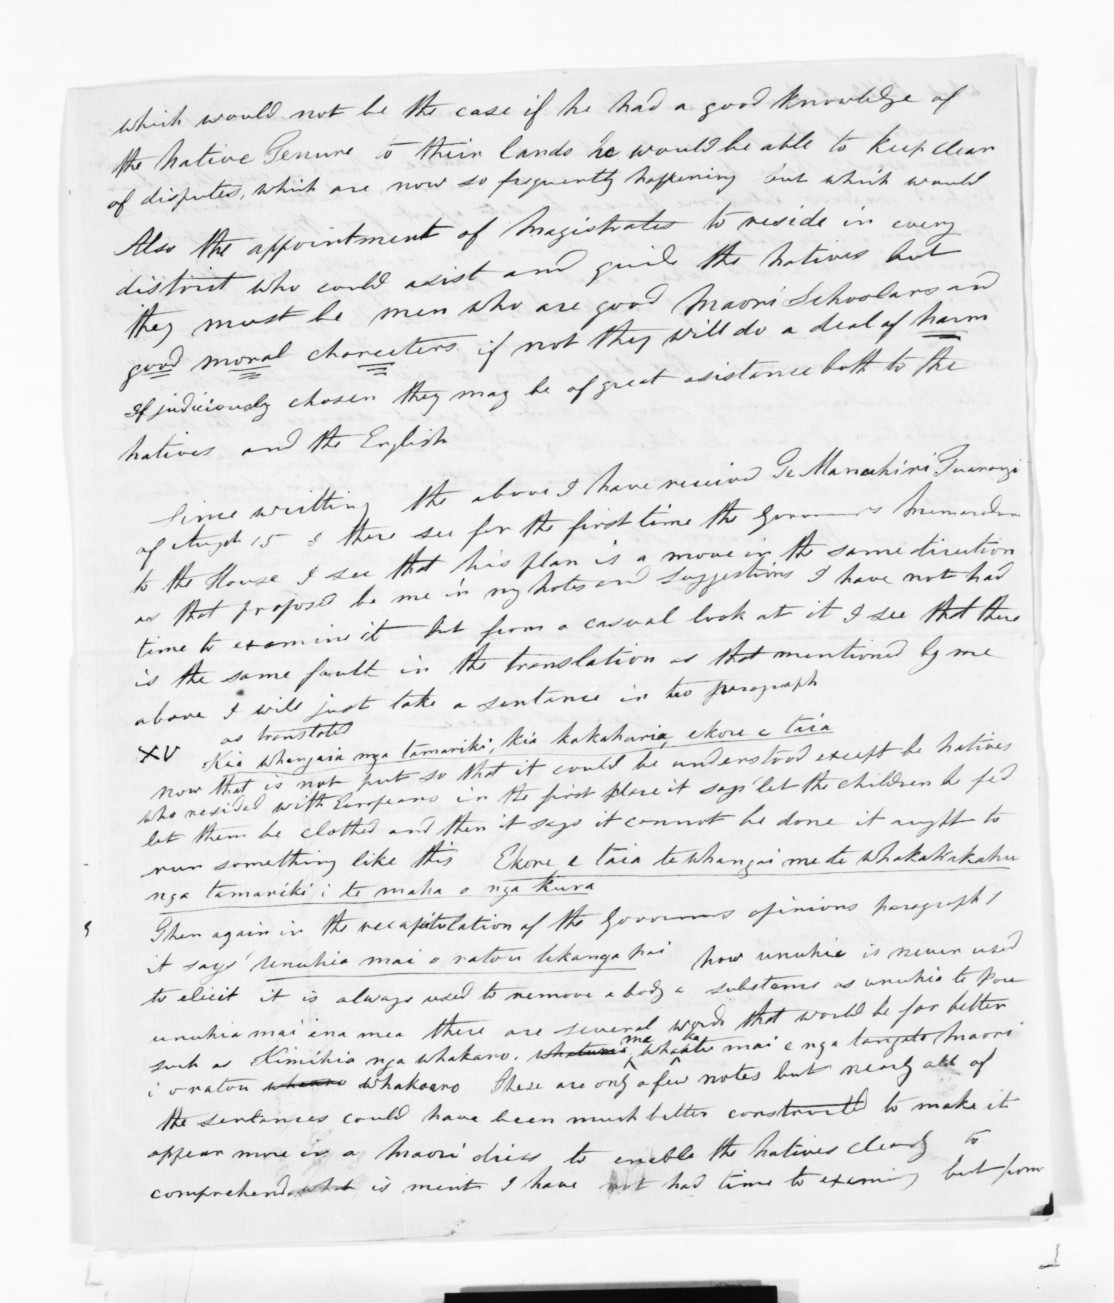 which would not be the case if he had a good knowledge of
the Native Tenure to their lands he would be able to keep clear
of disputes, which are now so frequently happening but which would
Also the appointment of Magistrates to reside in every
district who could asist and guide the Natives but
they must be men who are good Maori Schoolars and
good moral charecters if not they will do a deal of harm
If judiciously chosen they may be of great asistance both to the
Natives and the English
Since writting the above I have received Te Manuhiri Tuarangi
of Augst 15 I there see for the first time the Governors Memorandm
to the House I see that his plan is a move in the same direction
as that proposed be me in my notes and suggestions I have not had
time to examine it but from a casual look at it I see that there
is the same fault in the translation as that mentioned by me
above I will just take a sentance in two paragraph
as translated
XV Kia whangaia nga tamariki, kia kakahuria, ekore e taia
now that is not put so that it could be understood except be natives
who resided with Europeans in the first place it says let the children be fed
let them be clothed and then it says it connot be done it aught to
run something like this Ekore e taia te whangai me te whakakakahu
nga tamariki i te maha o nga kura
Then again in the recapitulation of the Governors opinions paragraph 1
it says' Unuhia mai o ratou tikanga pai now unuhia is never used
to elicit it is always used to remove a body a substance as unuhia te pou
unuhia mai ena mea there are several words that would be far better
such as Kimihia nga whakaro, ma ka whaatu mai e nga tangata Maori
i o ratou whakaaro These are only a few notes but nearly all of
the sentances could have been much better constructd to make it
appear more in a Maori dress to enable the Natives clearly to
comprehend what is ment I have not had time to examin but from